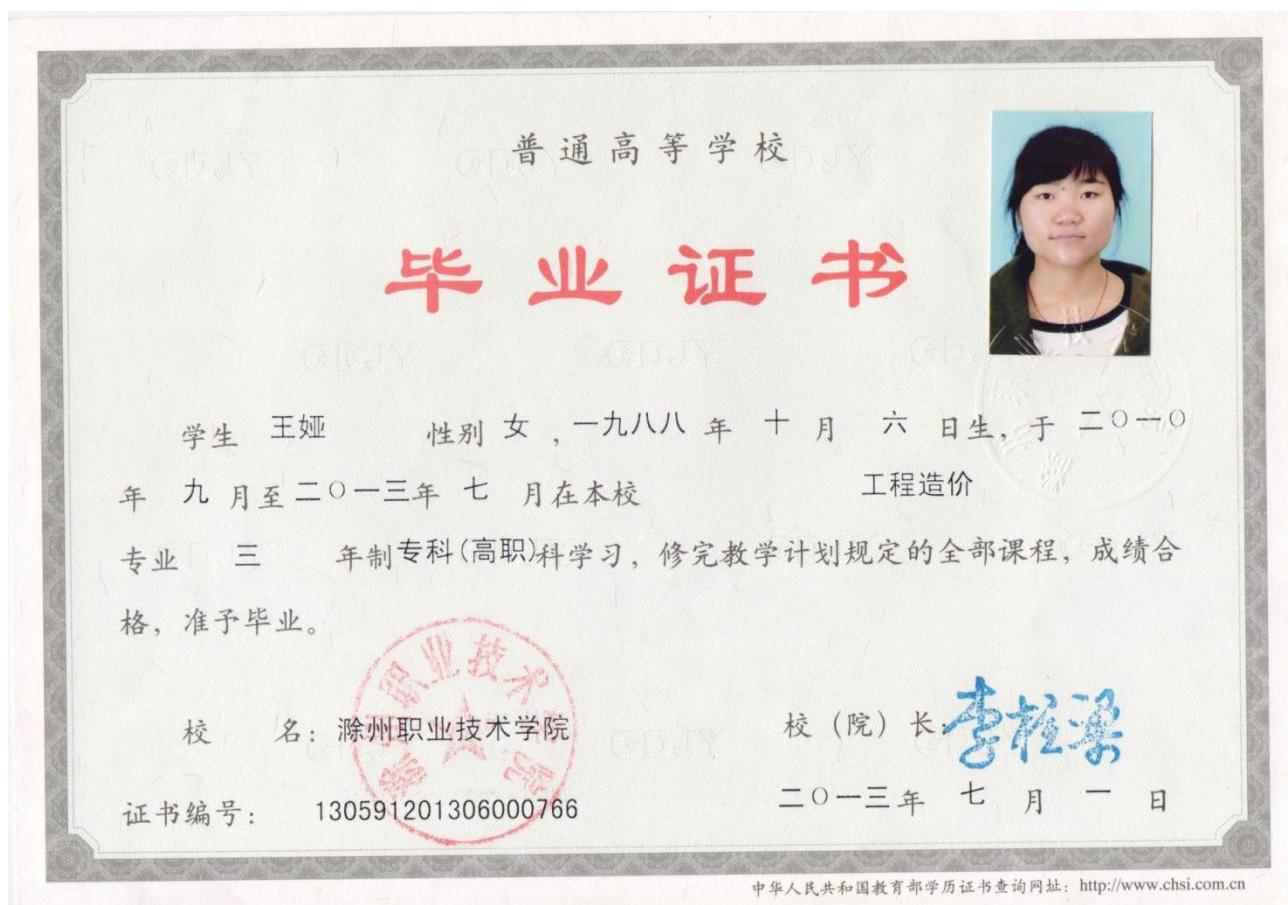 普通高等学校
毕业证书
学生 王娅 性别 女 ,一九八八 年 十 月 六 日生, 于 二〇一〇
年 九 月至 二〇一三年 七 月在本校 工程造价
专业 三 年制专科(高职)科学习, 修完教学计划规定的全部课程, 成绩合
格, 准予毕业。
滁州职业技术学院
校 名: 滁州职业技术学院 校 (院) 长: 李柱梁
证书编号: 130591201306000766 二〇一三年 七 月 一 日
中华人民共和国教育部学历证书查询网址: http://www.chsi.com.cn